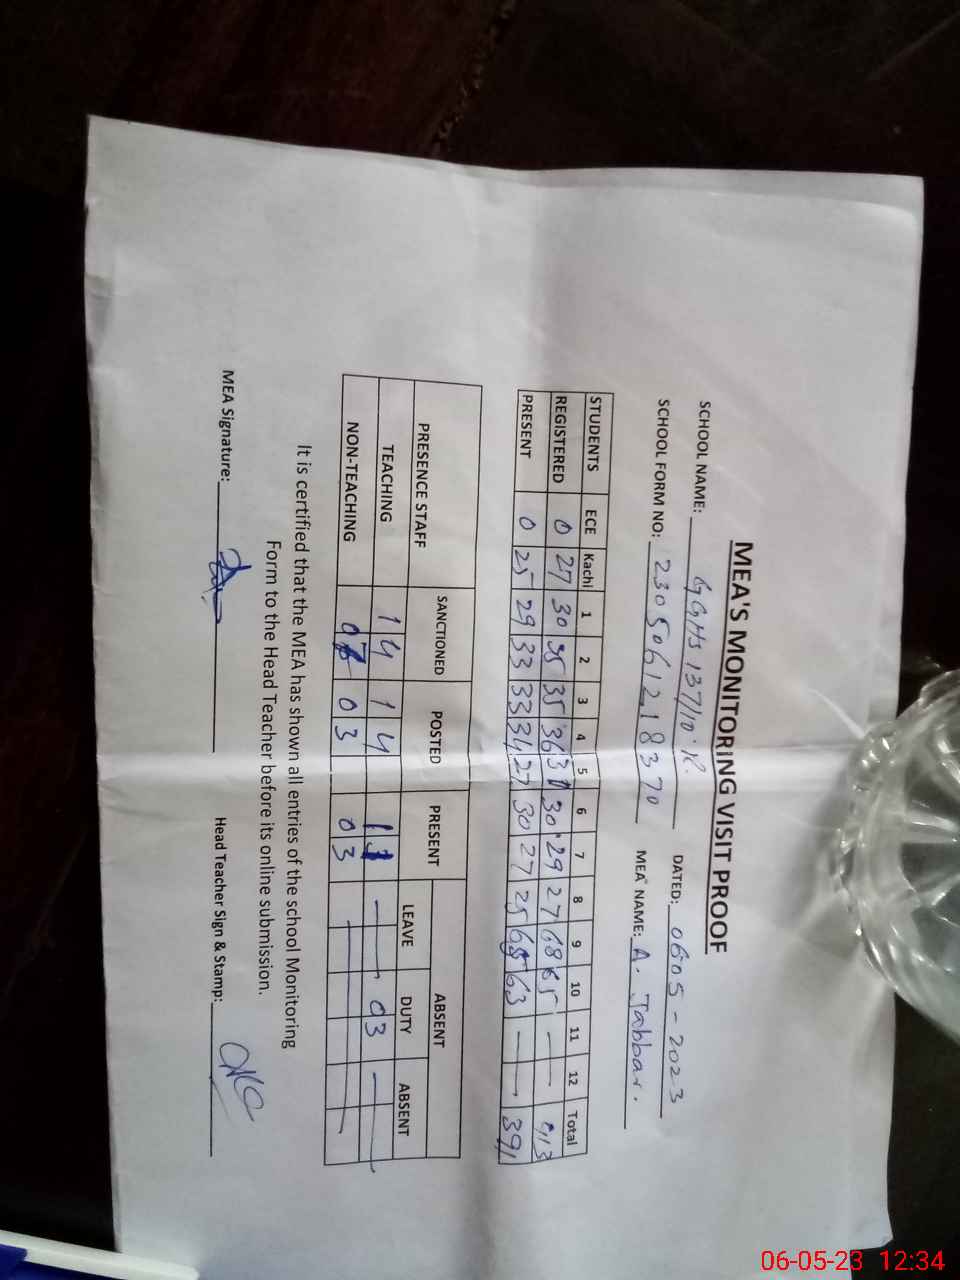 MEA'S MONITORING VISIT PROOF
SCHOOL NAME: GGHS 137/10.R. DATED: 06-05-2023
SCHOOL FORM NO: 2305061218370 MEA NAME: A. Jabbar.
STUDENTS ECE Kachi 1 2 3 4 5 6 7 8 9 10 11 12 Total
REGISTERED 0 27 30 35 35 36 31 30 29 27 68 65 — — 413
PRESENT 0 25 29 33 33 34 27 30 27 25 65 63 — — 391
PRESENCE STAFF SANCTIONED POSTED PRESENT ABSENT
LEAVE DUTY ABSENT
TEACHING 14 14 11 — 03 —
NON-TEACHING 03 03 — — —
It is certified that the MEA has shown all entries of the school Monitoring
Form to the Head Teacher before its online submission.
MEA Signature: Head Teacher Sign & Stamp:
06-05-23 12:34